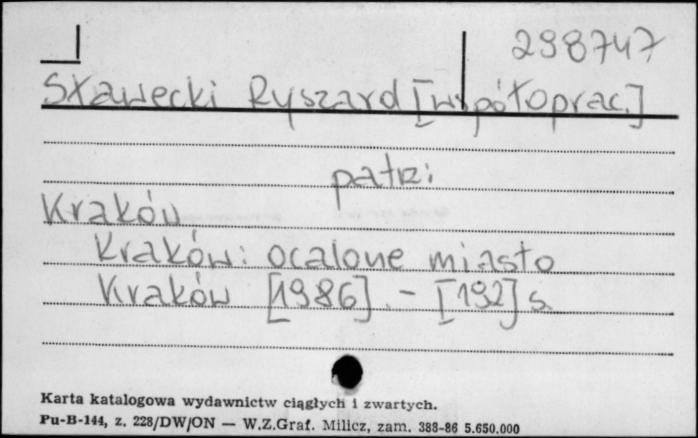 298747
Sławecki Ryszard [współoprac.]
patrz:
Kraków
Kraków: ocalone miasto
Kraków [1986]. - [192] s.
Karta katalogowa wydawnictw ciągłych i zwartych.
Pu-B-144, z. 228/DW/ON — W.Z.Graf. Milicz, zam. 388-86 5.650.000